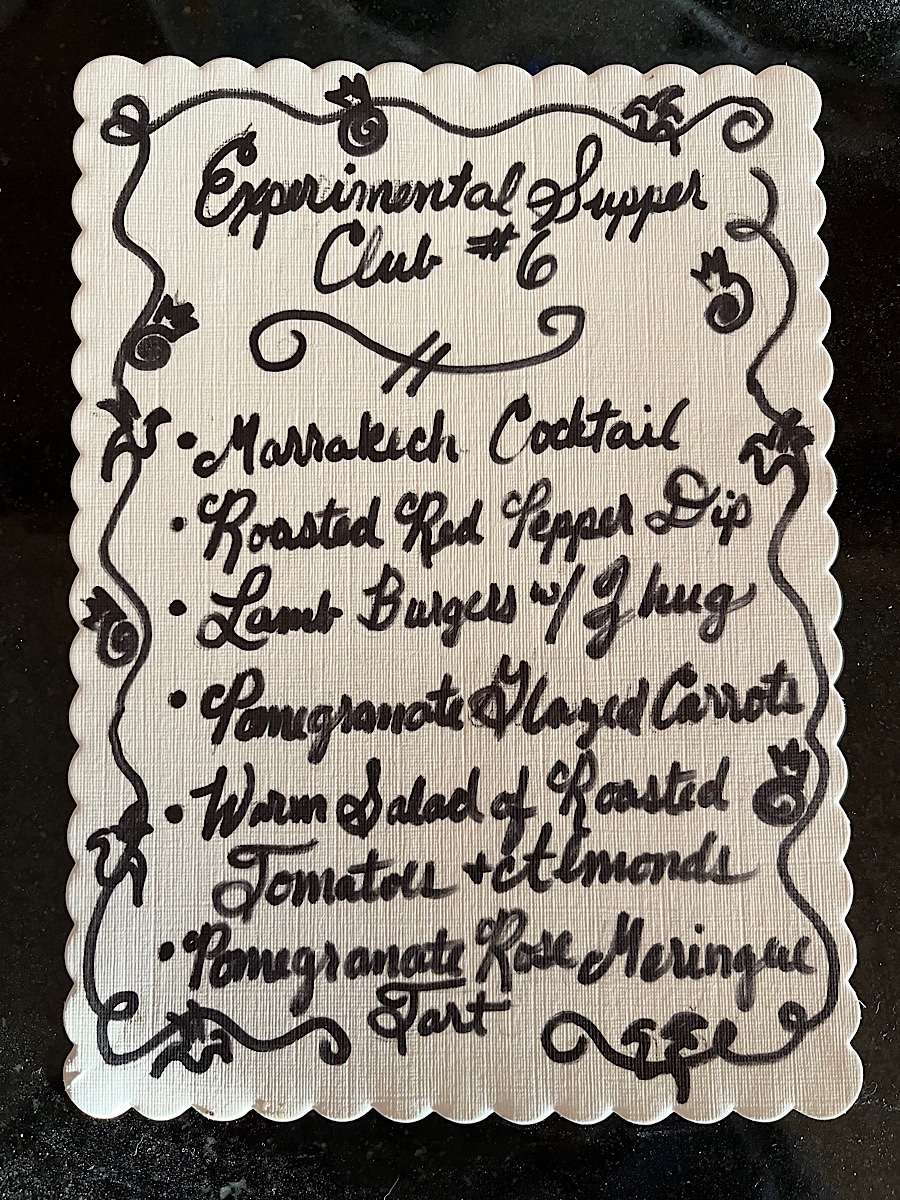 Experimental Supper
Club #6
• Marrakech Cocktail
• Roasted Red Pepper Dip
• Lamb Burgers w/ Zhug
• Pomegranate Glazed Carrots
• Warm Salad of Roasted
Tomatoes + Almonds
• Pomegranate Rose Meringue
Tart